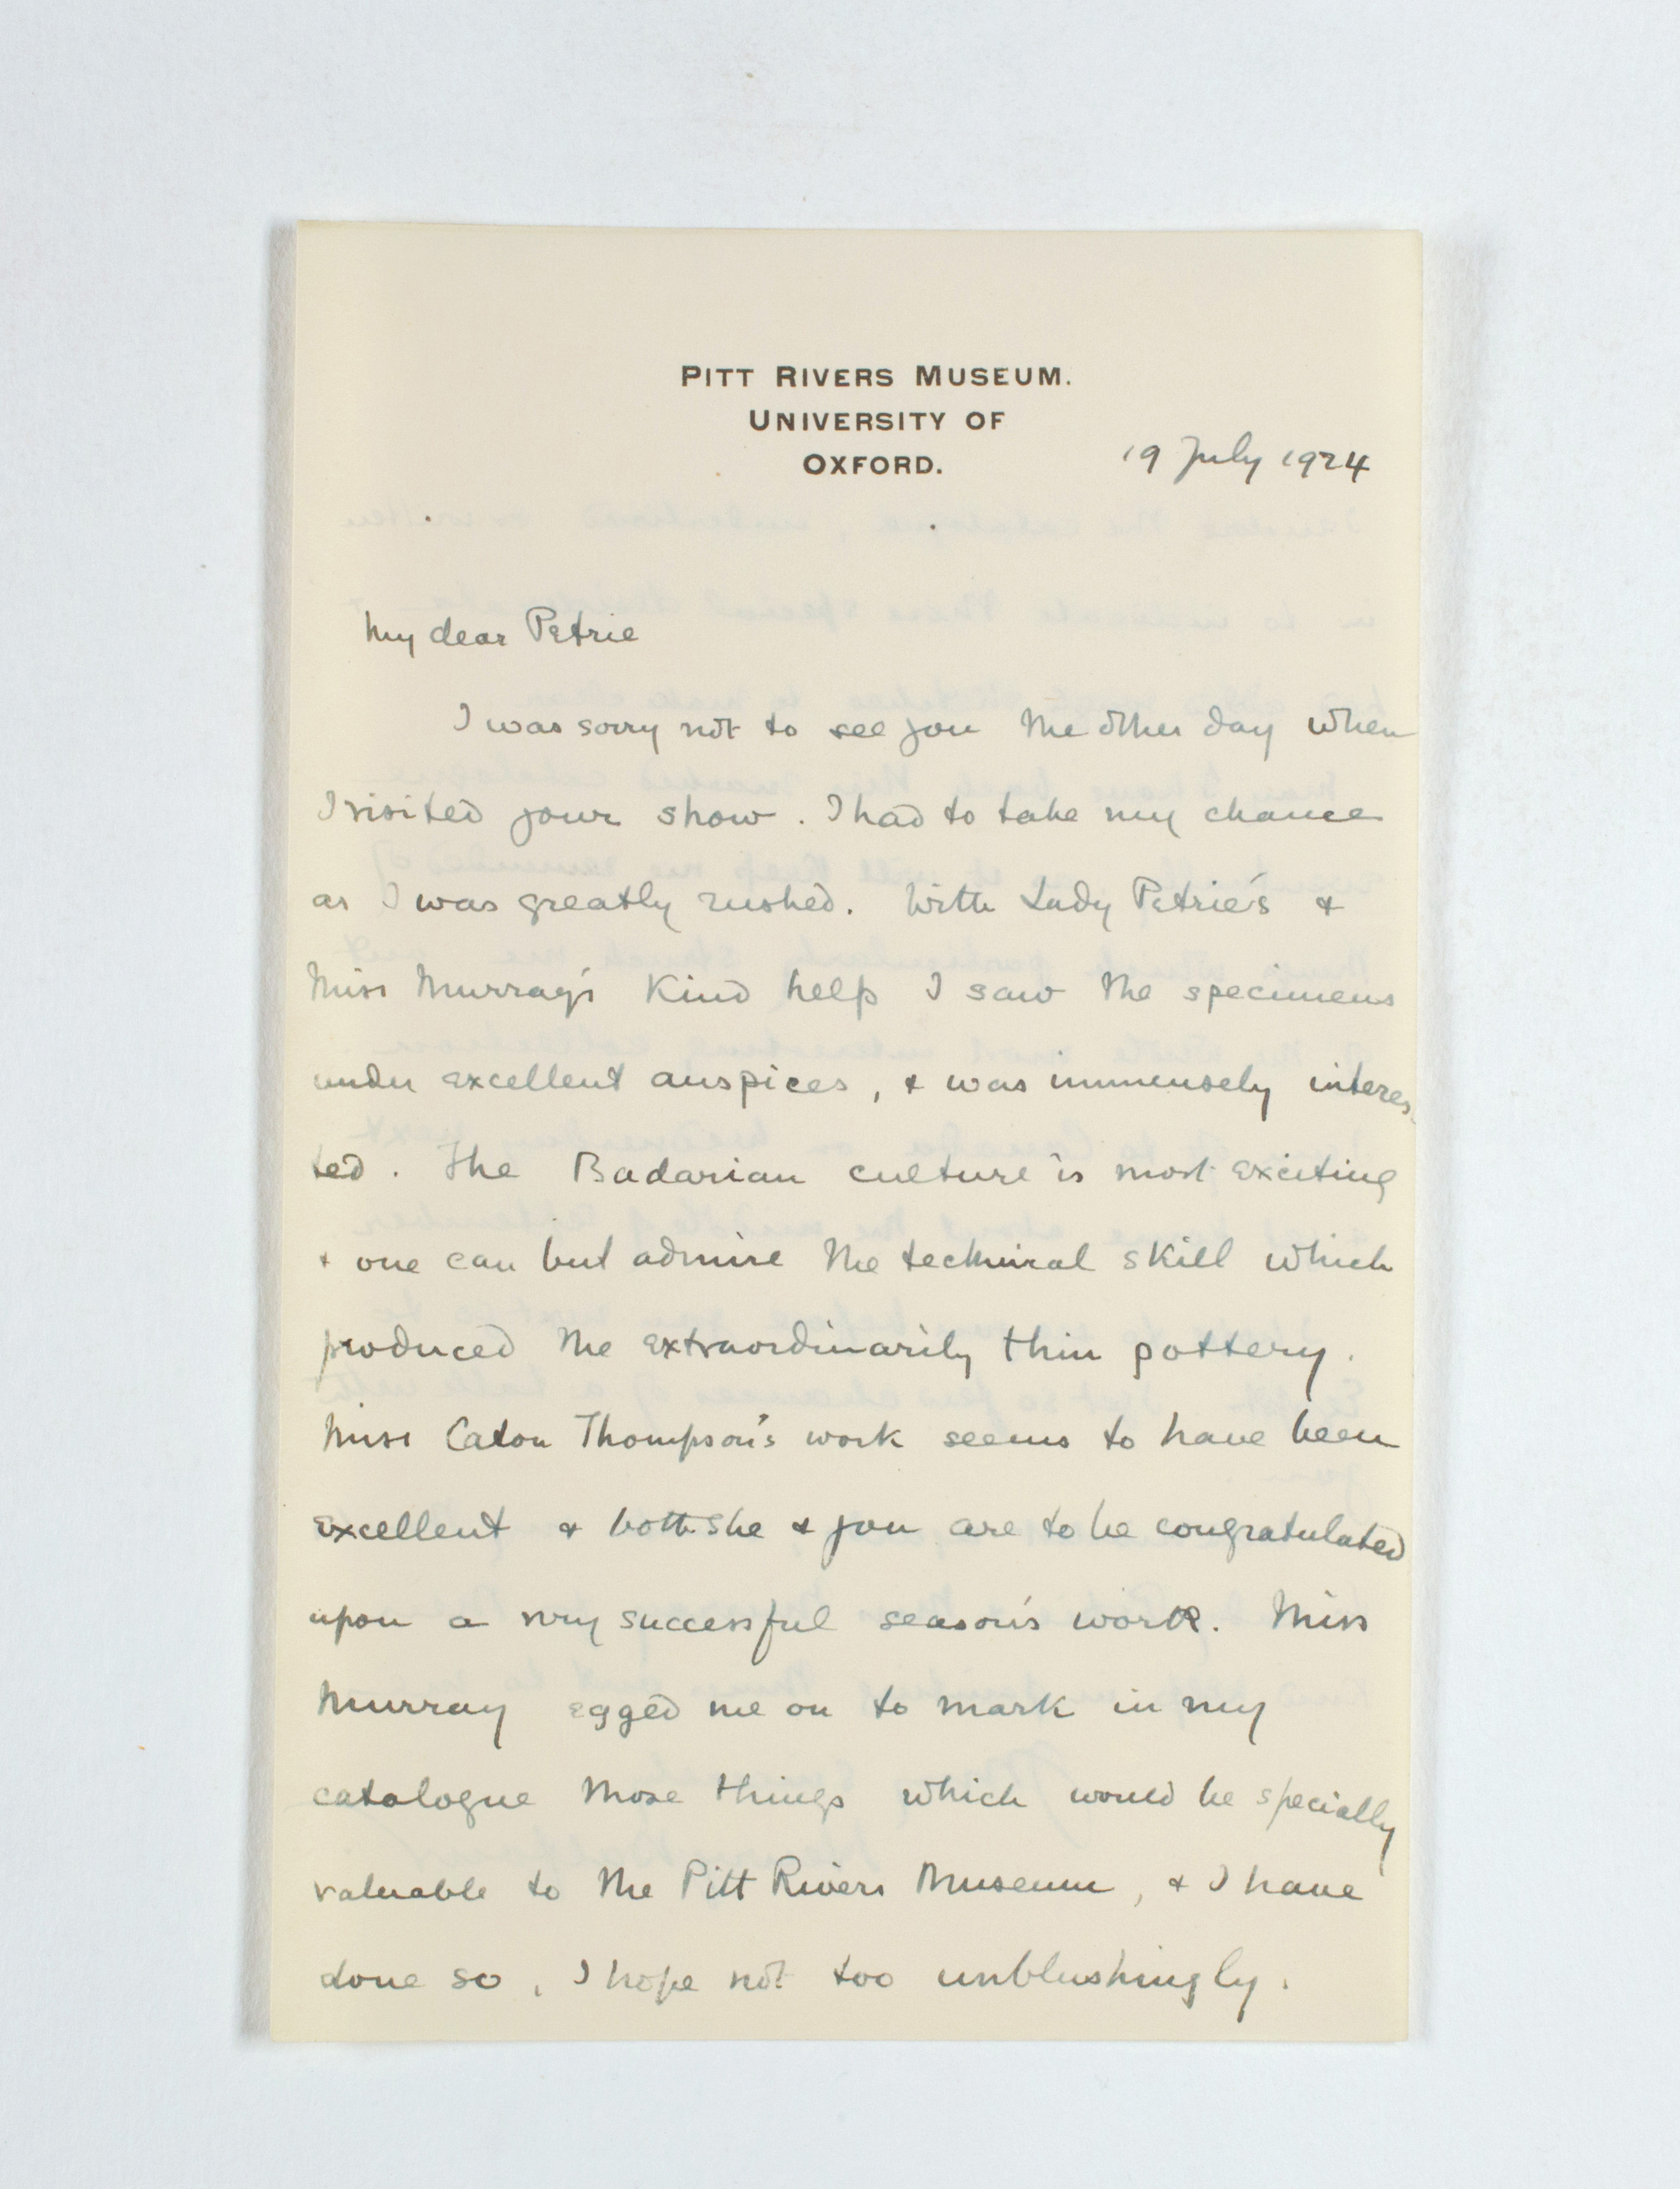 PITT RIVERS MUSEUM.
UNIVERSITY OF
OXFORD.
19 July 1924
My dear Petrie
I was sorry not to see you the other day when
I visited your show. I had to take my chance
as I was greatly rushed. With Lady Petrie's &
Miss Murray's kind help I saw the specimens
under excellent auspices, & was immensely interes
ted. The Badarian culture is most exciting
& one can but admire the technical skill which
produced the extraordinarily thin pottery.
Miss Caton Thompson's work seems to have been
excellent & both she & you are to be congratulated
upon a very successful season's work. Miss
Murray egged me on to mark in my
catalogue those things which would be specially
valuable to the Pitt Rivers Museum, & I have
done so, I hope not too unblushingly.